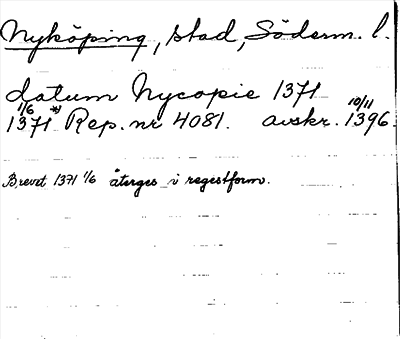 Nyköping, stad, Söderm. l.
datum Nycopie 1371
1371 1/6 *) Rep. nr 4081. avskr. 1396 10/11.
Brevet 1371 1/6 återges i regestform.